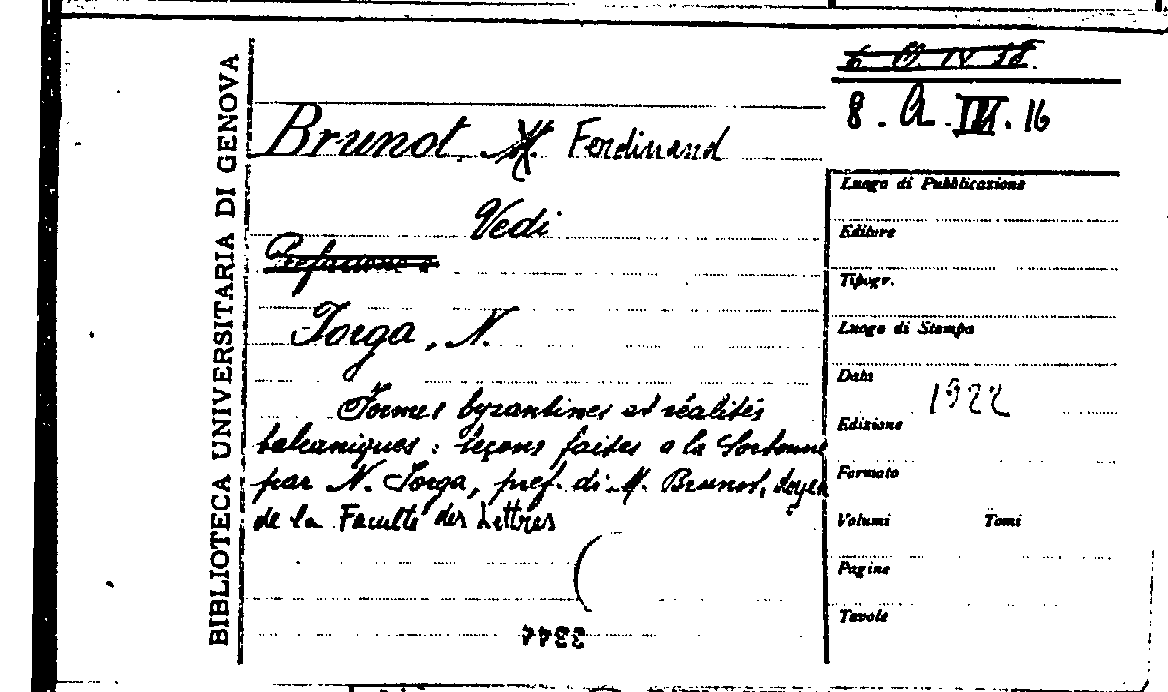 BIBLIOTECA UNIVERSITARIA DI GENOVA
8. A. III. 16
Brunot. M. Ferdinand
Vedi
Prefazione a
Jorga, N.
Formes byzantines et réalités
balcaniques : leçons faites a la Sorbonne
par N. Jorga, pref. di M. Brunot, doyen
de la Faculté des Lettres
3344
Luogo di Pubblicazione
Editore
Tipogr.
Luogo di Stampa
Data
1922
Edizione
Formato
Volumi Tomi
Pagine
Tavole